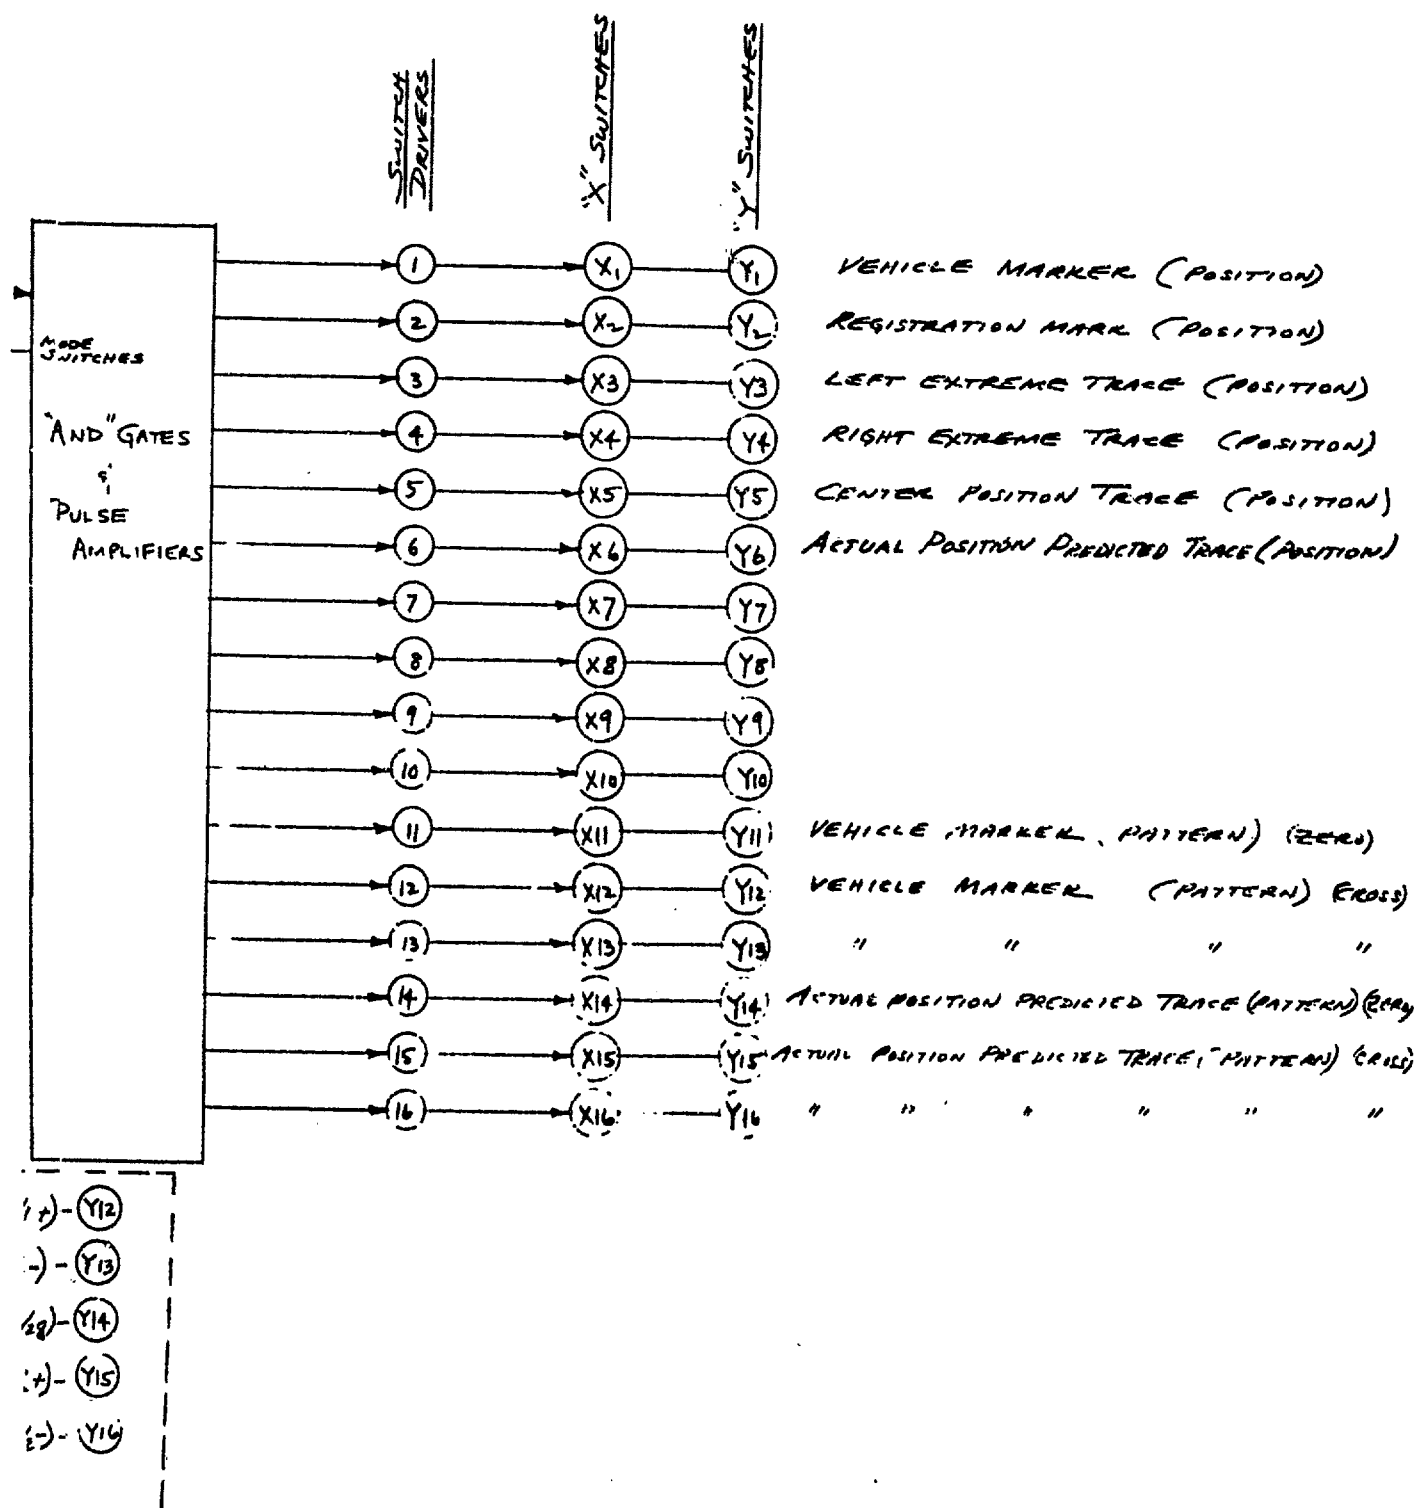 SWITCH
DRIVERS
"X" SWITCHES
"Y" SWITCHES
MODE
SWITCHES
"AND" GATES
&
PULSE
AMPLIFIERS
1 X1 Y1 VEHICLE MARKER (POSITION)
2 X2 Y2 REGISTRATION MARK (POSITION)
3 X3 Y3 LEFT EXTREME TRACE (POSITION)
4 X4 Y4 RIGHT EXTREME TRACE (POSITION)
5 X5 Y5 CENTER POSITION TRACE (POSITION)
6 X6 Y6 ACTUAL POSITION PREDICTED TRACE (POSITION)
7 X7 Y7
8 X8 Y8
9 X9 Y9
10 X10 Y10
11 X11 Y11 VEHICLE MARKER PATTERN) (ZERO)
12 X12 Y12 VEHICLE MARKER (PATTERN) (CROSS)
13 X13 Y13 " " " "
14 X14 Y14 ACTUAL POSITION PREDICTED TRACE (PATTERN) (ZERO
15 X15 Y15 ACTUAL POSITION PREDICTED TRACE (PATTERN) (CROSS)
16 X16 Y16 " " " " " "
+)-Y12
-)-Y13
)-Y14
+)-Y15
-)-Y16